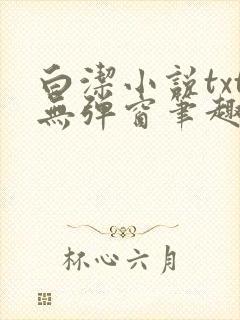 白潔小説txt
無彈窗筆趣
杯心六月